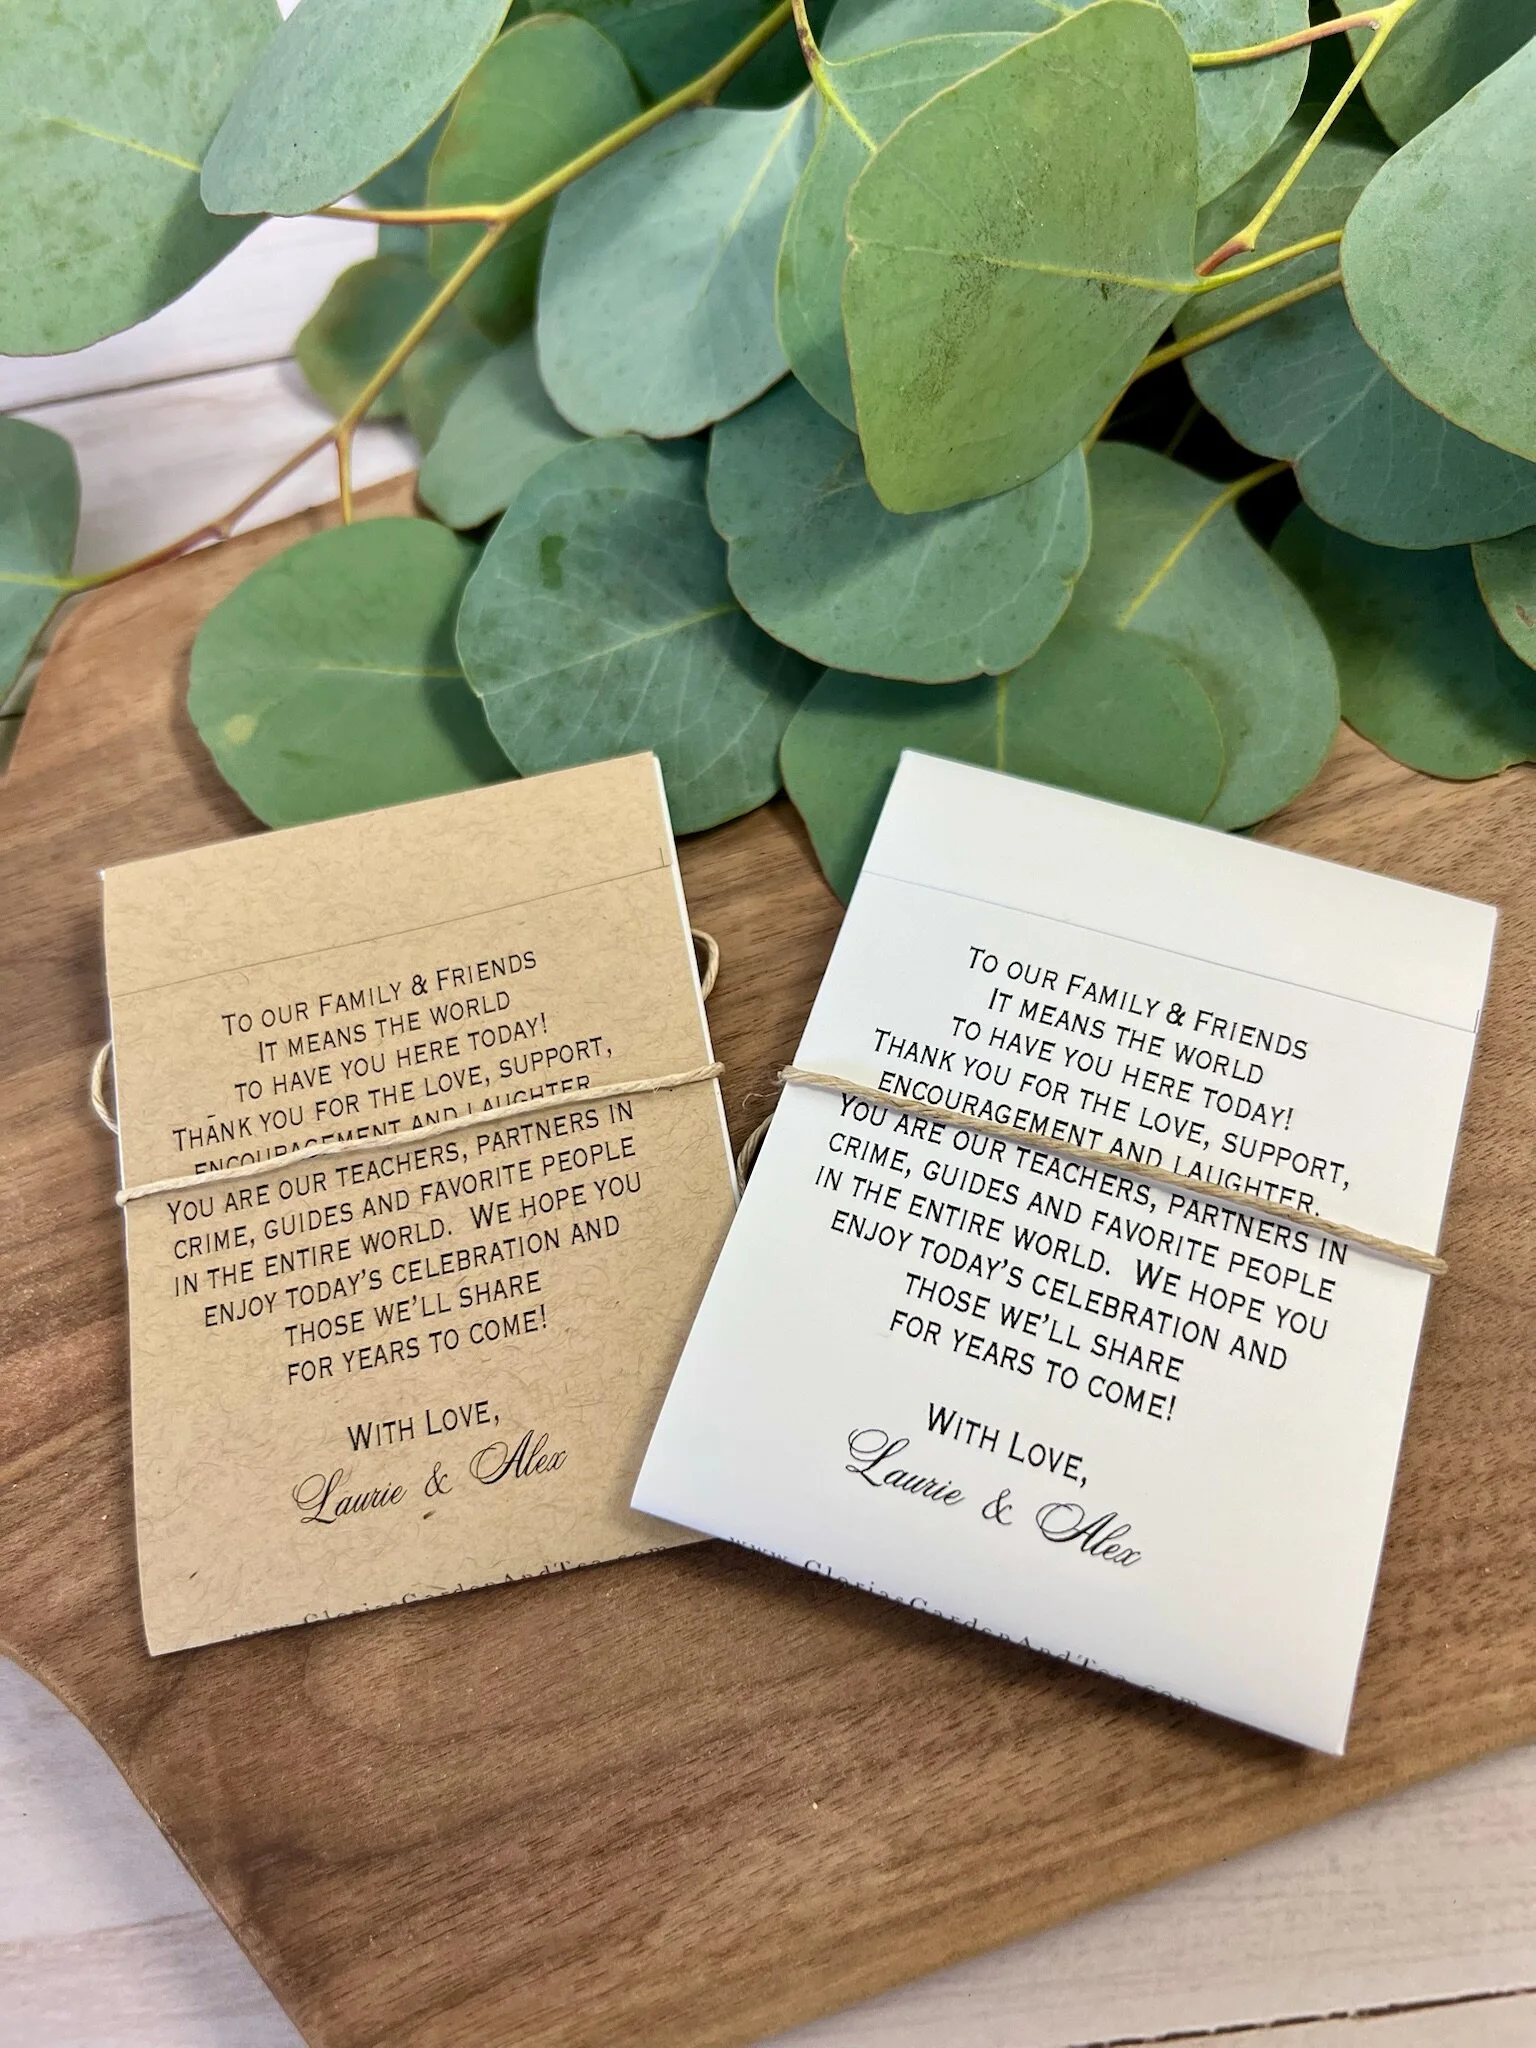 To our Family & Friends
It means the world
to have you here today!
Thank you for the love, support,
encouragement and laughter
You are our teachers, partners in
crime, guides and favorite people
in the entire world. We hope you
enjoy today's celebration and
those we'll share
for years to come!
With Love,
Laurie & Alex
www.GloriasGardenAndTea.com
To our Family & Friends
It means the world
to have you here today!
Thank you for the love, support,
encouragement and laughter.
You are our teachers, partners in
crime, guides and favorite people
in the entire world. We hope you
enjoy today's celebration and
those we'll share
for years to come!
With Love,
Laurie & Alex
www.GloriasGardenAndTea.com